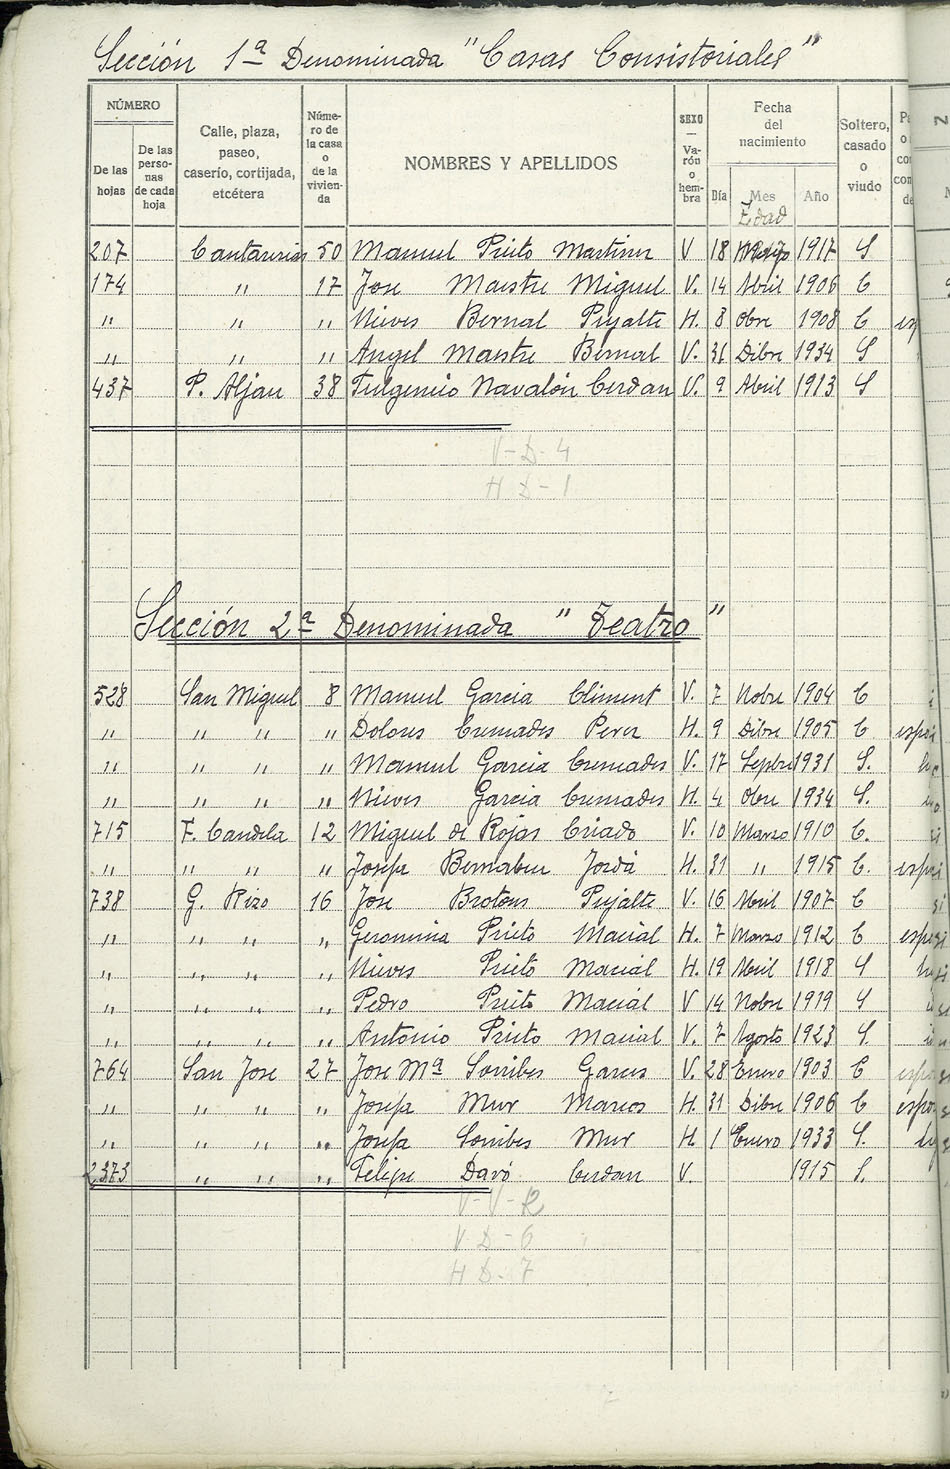 Sección 1ª Denominada "Casas Consistoriales"
NÚMERO
De las hojas
De las perso- nas de cada hoja
Calle, plaza, paseo, caserío, cortijada, etcétera
Núme- ro de la casa o de la vivien- da
NOMBRES Y APELLIDOS
SEXO — Va- rón o hem- bra
Fecha del nacimiento
Día Mes Año
Edad
Soltero, casado o viudo
207 Cantarerias 50 Manuel Prieto Martinez V 18 1917 S
174 " 17 Jose Maestre Miguel V. 14 Abril 1906 C
" " " Nieves Bernal Pujalte H. 8 Obre 1908 C
" " " Angel Maestre Bernal V. 31 Dibre 1934 S
437 P. Aljau 38 Fulgencio Navalón Cerdan V. 9 Abril 1913 S
V-D-4
H D-1
Sección 2ª Denominada "Teatro"
528 San Miguel 8 Manuel Garcia Climent V. 7 Nobre 1904 C
" " " " Dolores Cremades Perez H. 9 Dibre 1905 C
" " " " Manuel Garcia Cremades V. 17 Sepbre 1931 S.
" " " " Nieves Garcia Cremades H. 4 Obre 1934 S.
715 F. Candela 12 Miguel de Rojas Criado V. 10 Marzo 1910 C.
" " " " Josefa Bernabeu Jordá H. 31 " 1915 C.
738 G. Rizo 16 Jose Brotons Pujalte V. 16 Abril 1907 C
" " " " Geronima Prieto Macial H. 7 Marzo 1912 C
" " " " Nieves Prieto Macial H. 19 Abril 1918 S
" " " " Pedro Prieto Macial V 14 Nobre 1919 S
" " " " Antonio Prieto Macial V. 7 Agosto 1923 S.
764 San Jose 27 Jose Mª Sorribes Garces V. 28 Enero 1903 C
" " " " Josefa Mur Marcos H. 31 Dibre 1906 C
" " " " Josefa Sorribes Mur H 1 Enero 1933 S.
2373 " " " Felipe Davó Cerdan V. 1915 S.
V D-6
H D-7